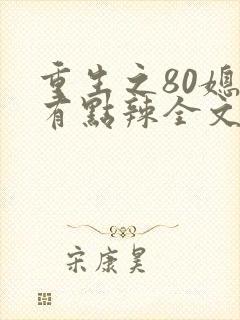 重生之80媳
有點辣全文
宋康昊